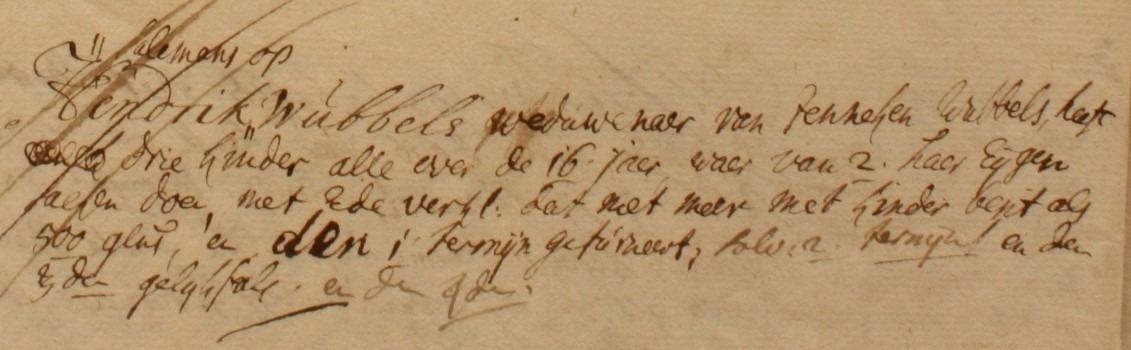 alemans op
Hendrik Wubbels weduwenaer van Fennechen Wubbels, heeft
drie kinder alle over de 16 jaer, waer van 2. haer Eygen
saeken doen, met Ede verkl. dat niet meer met kinder besit als
500 glns, en den 1 termijn gefurneert, solv. 2. termijn en den
3den gelykfals. en den 4den.